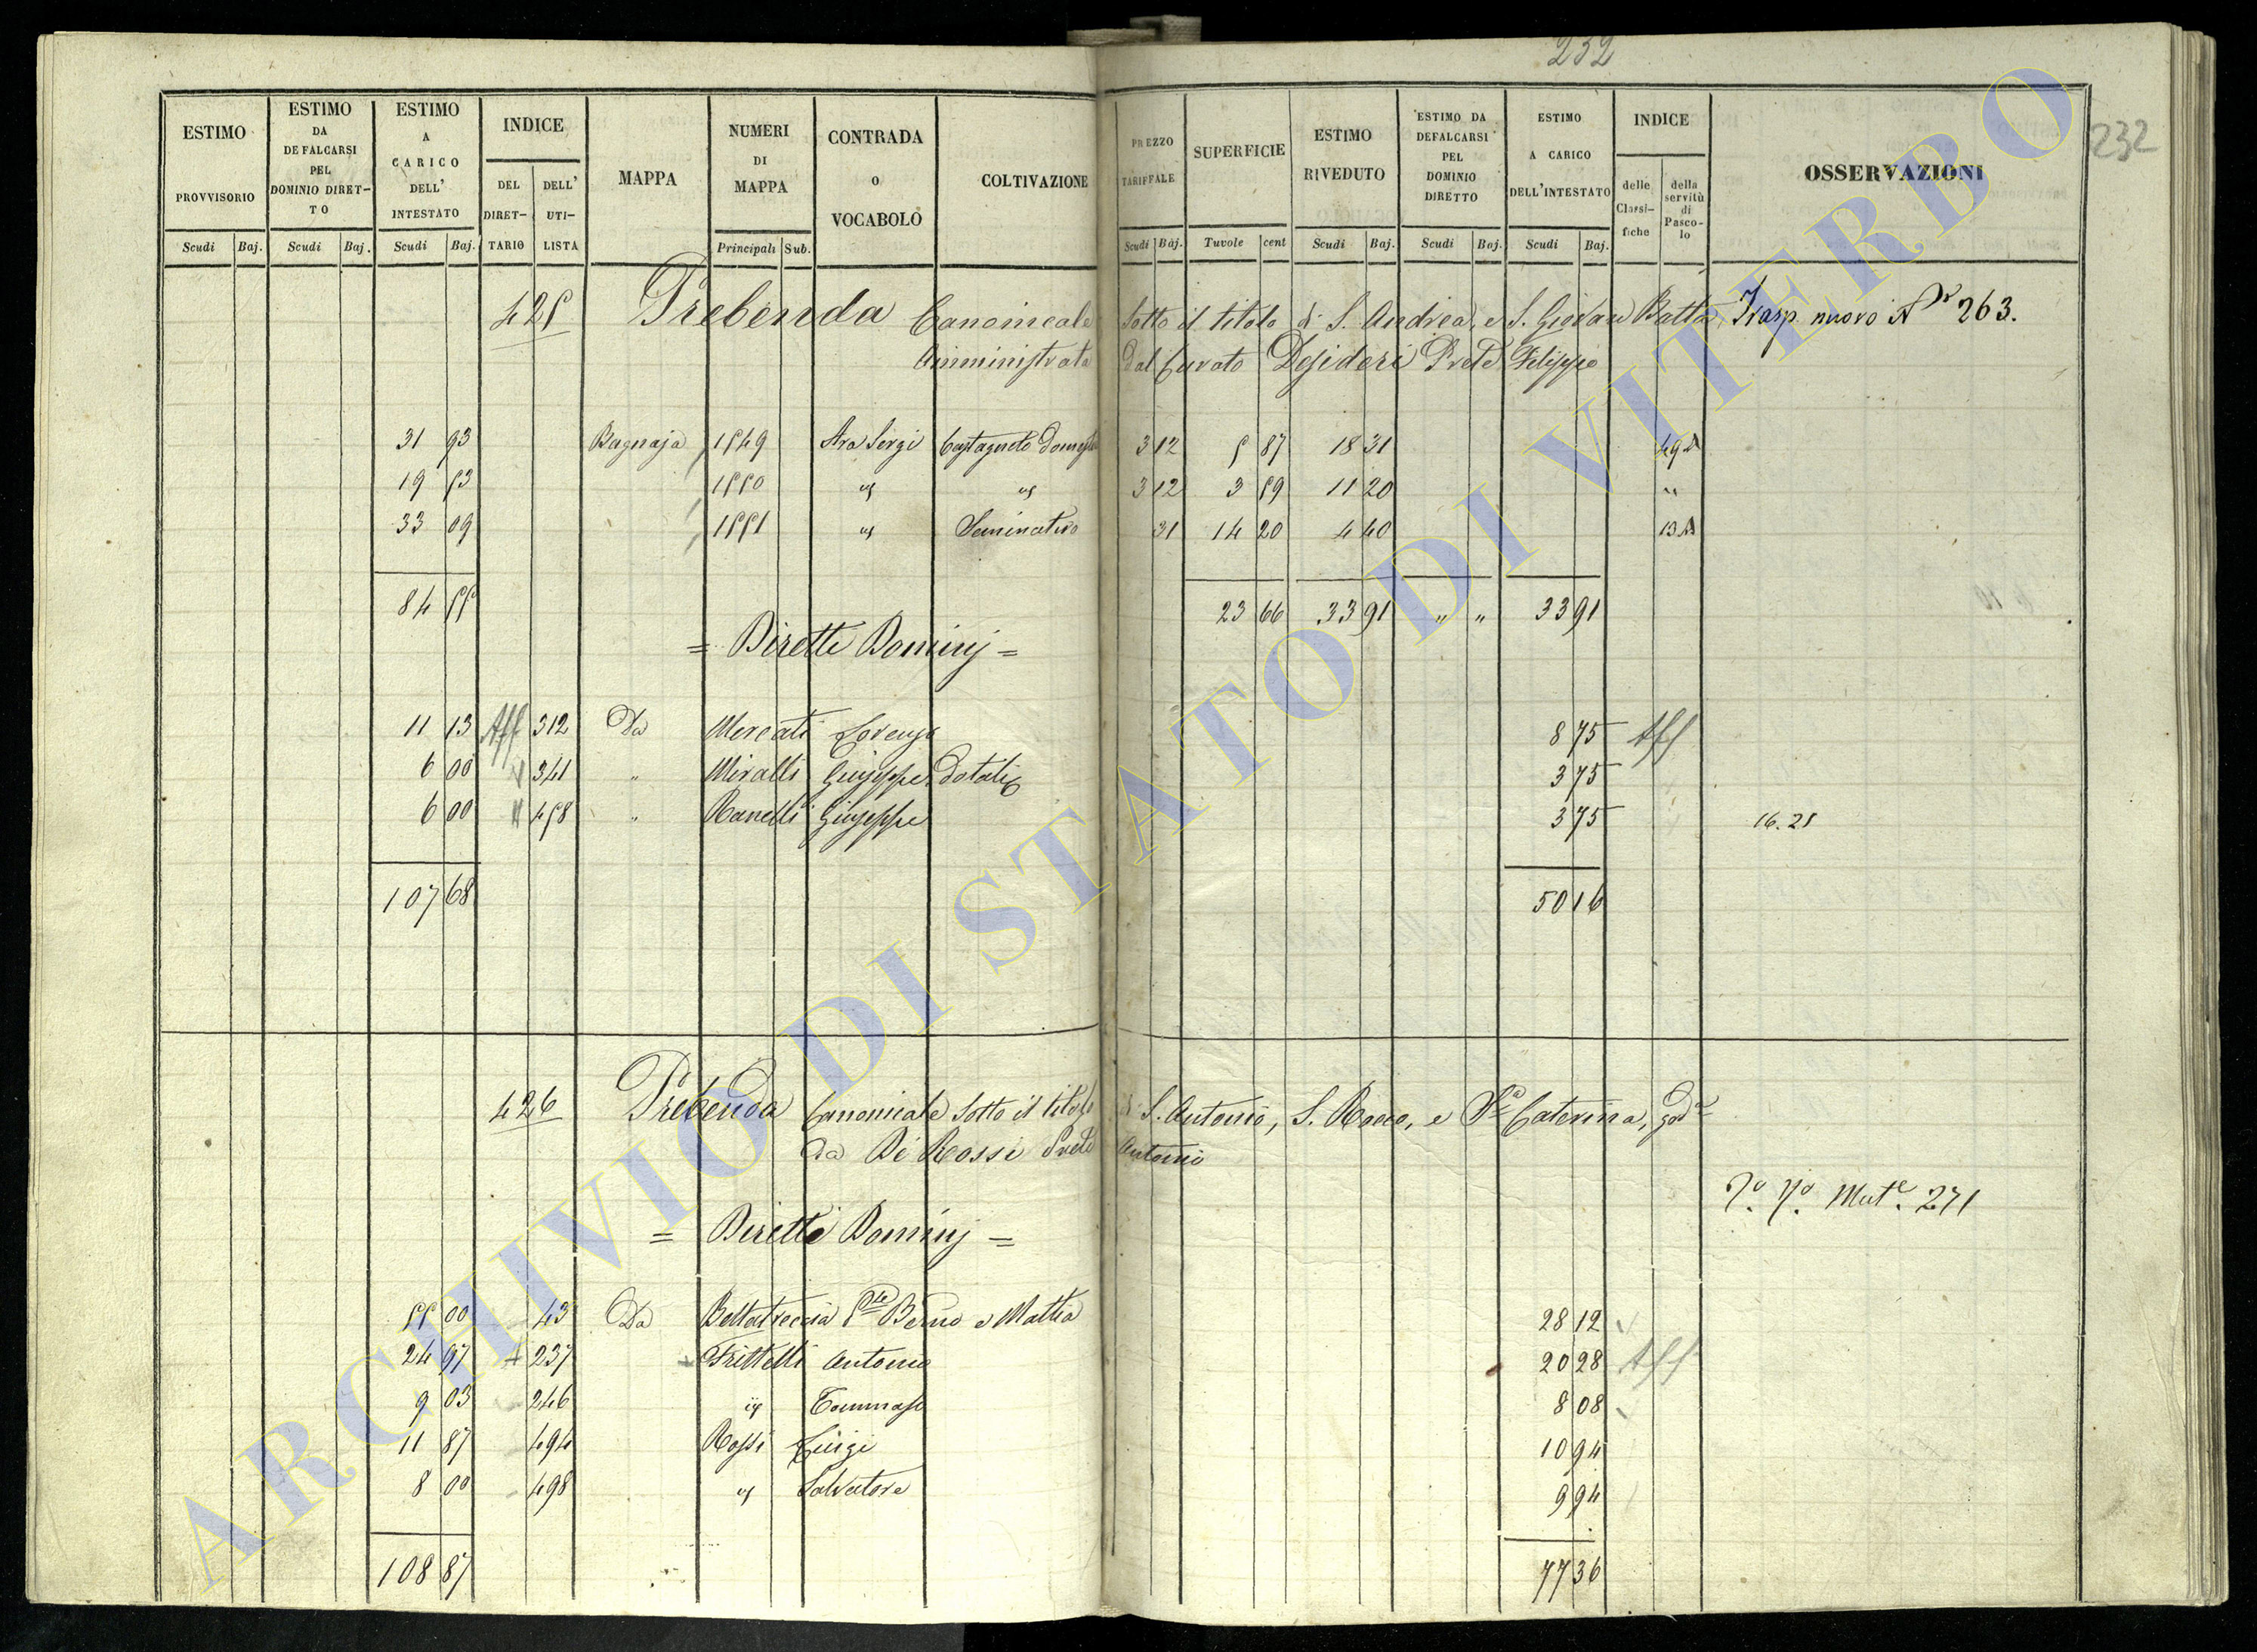 232
232
ESTIMO PROVVISORIO
ESTIMO DA DEFALCARSI PEL DOMINIO DIRET-TO
ESTIMO A CARICO DELL' INTESTATO
INDICE
DEL DIRET-TARIO
DELL' UTI-LISTA
MAPPA
NUMERI DI MAPPA
CONTRADA O VOCABOLO
COLTIVAZIONE
PREZZO TARIFFALE
SUPERFICIE
ESTIMO RIVEDUTO
ESTIMO DA DEFALCARSI PEL DOMINIO DIRETTO
ESTIMO A CARICO DELL'INTESTATO
INDICE
delle Classi-fiche
della servitù di Pasco-lo
OSSERVAZIONI
Scudi Baj. Scudi Baj. Scudi Baj. Principali Sub. Scudi Baj. Tavole cent Scudi Baj. Scudi Baj. Scudi Baj.
425 Prebenda Canonicale Sotto il titolo di S. Andrea, e S. Giovanni Batta Trasp. nuovo N° 263.
Amministrata dal Curato Desideri Prete Filippo
31 93 Bagnaja 1549 Ara Sergi Castagneto 3 12 5 87 18 31
19 53 1550 " " 3 12 3 59 11 20 "
33 09 1551 " Seminativo 31 14 20 4 40
84 55 23 66 33 91 " " 33 91
= Diretti Dominj =
11 13 Aff 312 Da Mercati Lorenzo 8 75 Aff
6 00 341 " Miralli Giuseppe dotali 3 75
6 00 458 " Ranelli Giuseppe 3 75 16.25
107 68 50 16
426 Prebenda Canonicale Sotto il titolo di S. Antonio, S. Rocco, e Sa Caterina, god
da De Rossi Prete Antonio
Mut. 271
= Diretti Dominj =
55 00 43 Da e Mattia 28 12
24 97 + 237 Frittelli Antonio 20 28 Aff
9 03 246 " Tommaso 8 08
11 87 494 Rossi Luigi 10 94
8 00 498 " Salvatore 9 94
108 87 77 36
ARCHIVIO DI STATO DI VITERBO